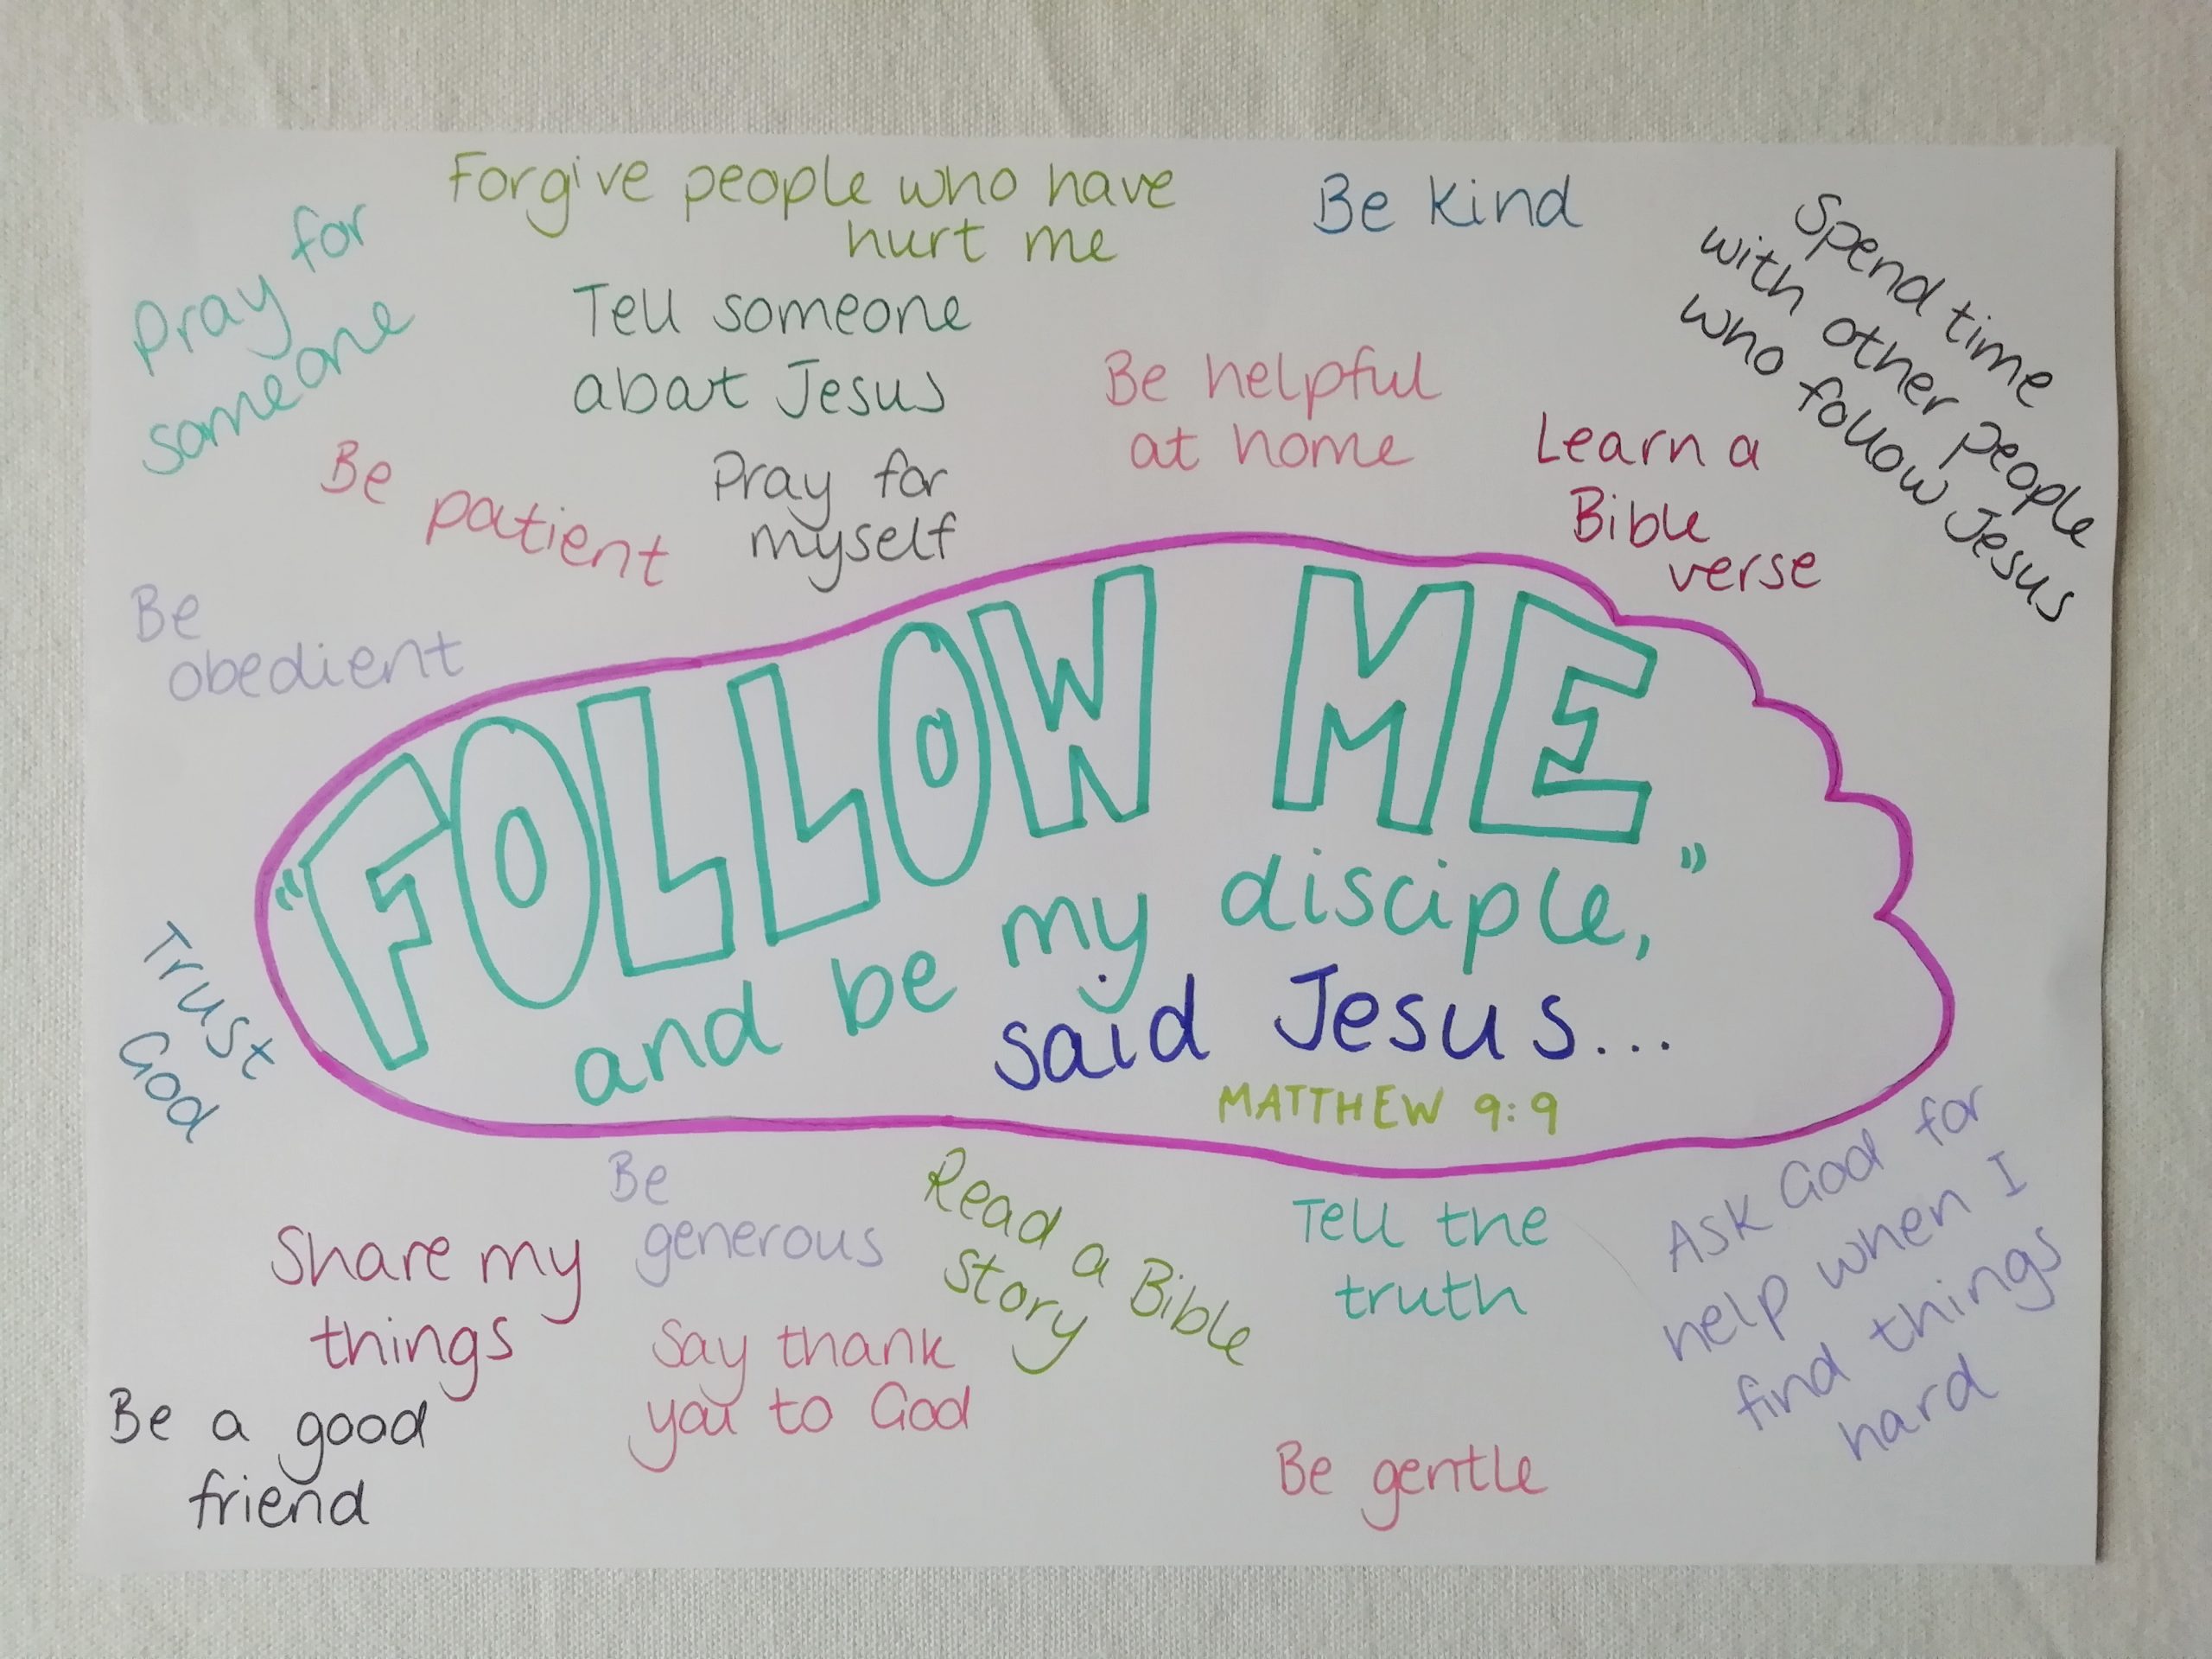 Forgive people who have
hurt me
Be kind
Spend time
with other people
who follow Jesus
Pray for
someone
Tell someone
about Jesus
Be helpful
at home
Learn a
Bible
verse
Be patient
Pray for
myself
Be
obedient
"FOLLOW ME
and be my disciple,"
said Jesus...
MATTHEW 9:9
Trust
God
Be
generous
Read a Bible
story
Tell the
truth
Ask God for
help when I
find things
hard
Share my
things
Say thank
you to God
Be a good
friend
Be gentle